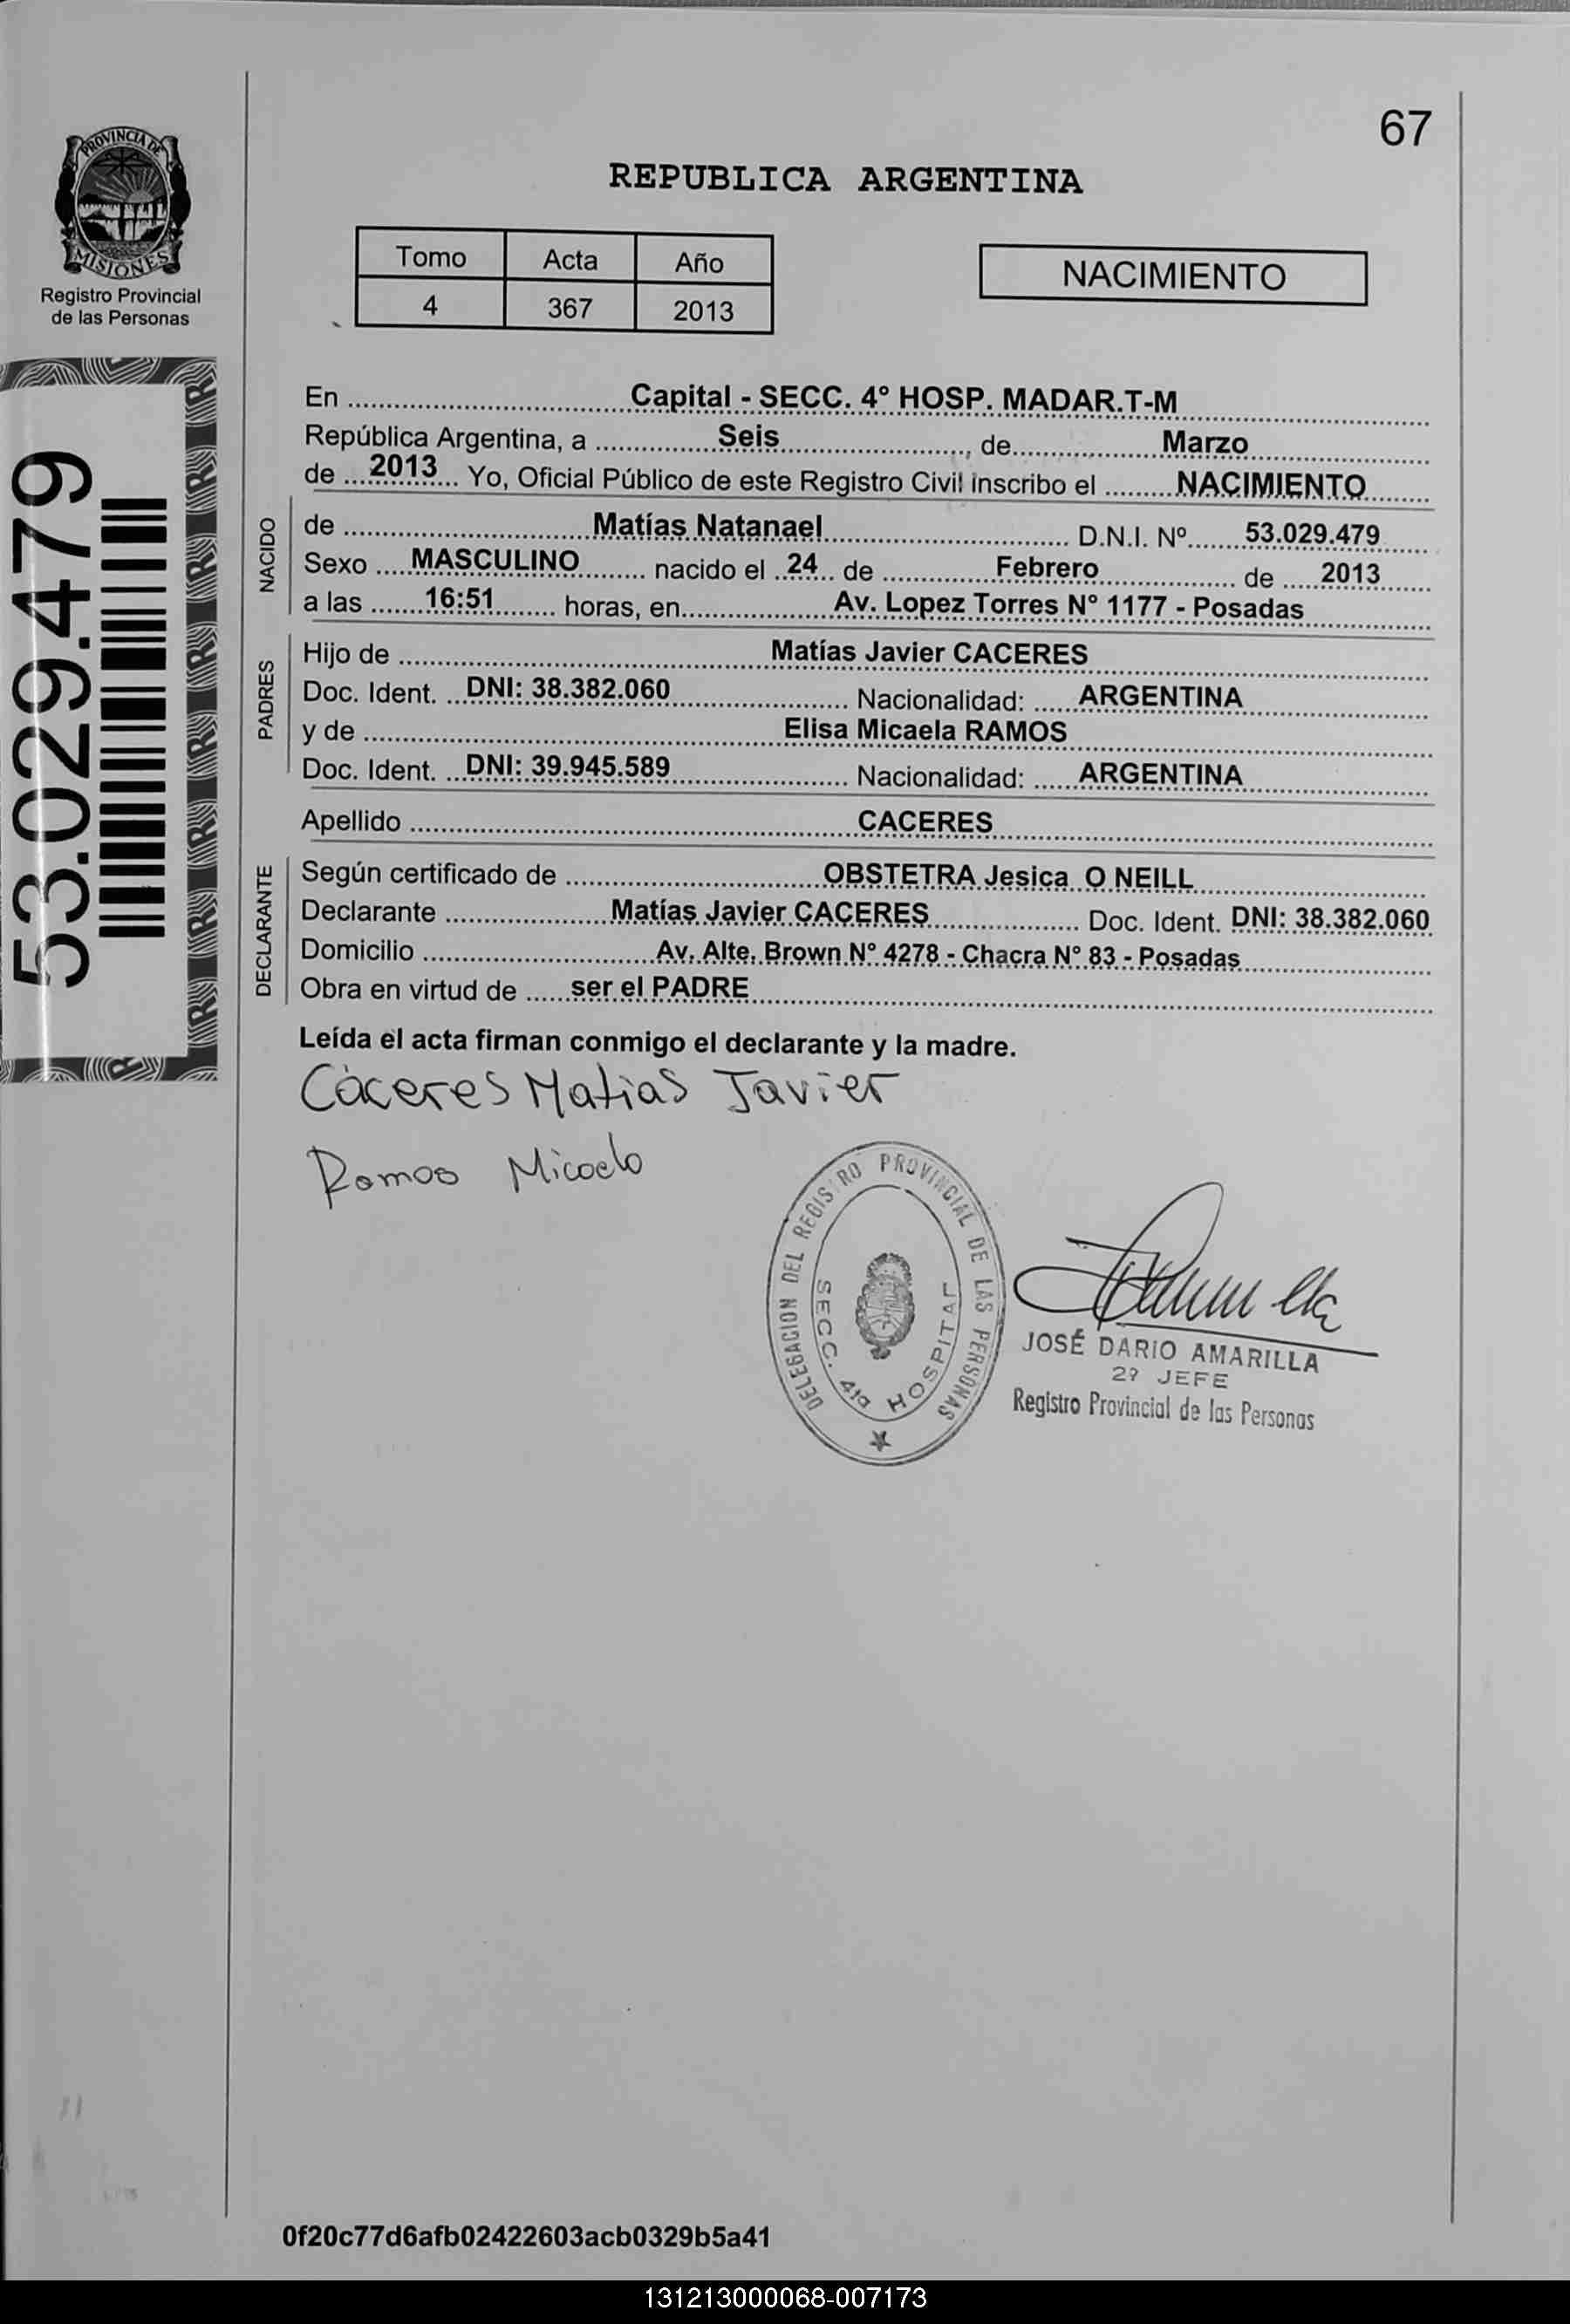 67
PROVINCIA DE
MISIONES
Registro Provincial
de las Personas
REPUBLICA ARGENTINA
Tomo Acta Año
4 367 2013
NACIMIENTO
53.029.479
En Capital - SECC. 4° HOSP. MADAR.T-M
República Argentina, a Seis, de Marzo
de 2013 Yo, Oficial Público de este Registro Civil inscribo el NACIMIENTO
NACIDO
de Matías Natanael D.N.I. Nº 53.029.479
Sexo MASCULINO nacido el 24 de Febrero de 2013
a las 16:51 horas, en Av. Lopez Torres N° 1177 - Posadas
PADRES
Hijo de Matías Javier CACERES
Doc. Ident. DNI: 38.382.060 Nacionalidad: ARGENTINA
y de Elisa Micaela RAMOS
Doc. Ident. DNI: 39.945.589 Nacionalidad: ARGENTINA
Apellido CACERES
DECLARANTE
Según certificado de OBSTETRA Jesica O NEILL
Declarante Matías Javier CACERES Doc. Ident. DNI: 38.382.060
Domicilio Av. Alte. Brown N° 4278 - Chacra N° 83 - Posadas
Obra en virtud de ser el PADRE
Leída el acta firman conmigo el declarante y la madre.
Cáceres Matias Javier
Ramos Micaela
DELEGACION DEL REGISTRO PROVINCIAL DE LAS PERSONAS
SECC. 4ta HOSPITAL
JOSÉ DARIO AMARILLA
2º JEFE
Registro Provincial de las Personas
0f20c77d6afb02422603acb0329b5a41
131213000068-007173